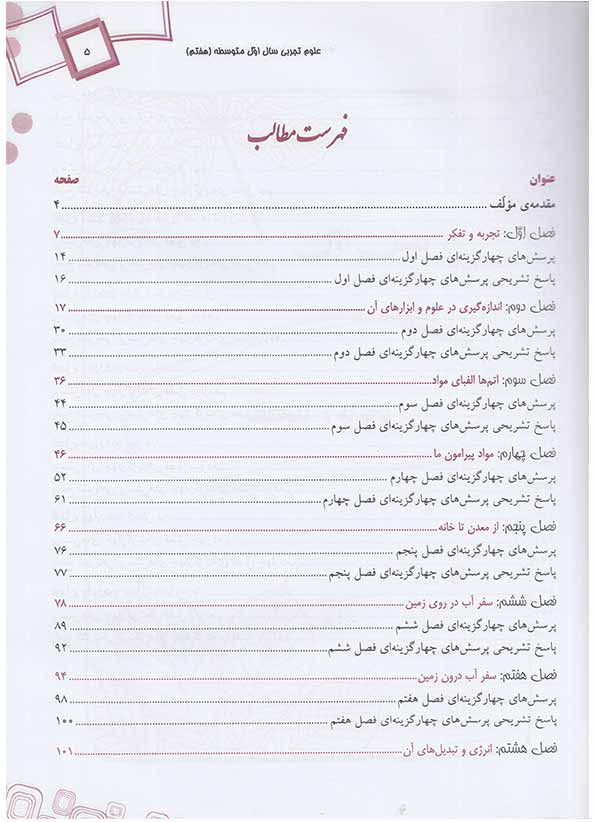 ۵
علوم تجربی سال اوّل متوسطه (هفتم)
فهرست مطالب
عنوان صفحه
مقدمه‌ی مؤلّف ۴
فصل اوّل: تجربه و تفکر ۷
پرسش‌های چهارگزینه‌ای فصل اول ۱۴
پاسخ تشریحی پرسش‌های چهارگزینه‌ای فصل اول ۱۶
فصل دوم: اندازه‌گیری در علوم و ابزارهای آن ۱۷
پرسش‌های چهارگزینه‌ای فصل دوم ۳۰
پاسخ تشریحی پرسش‌های چهارگزینه‌ای فصل دوم ۳۳
فصل سوم: اتم‌ها الفبای مواد ۳۶
پرسش‌های چهارگزینه‌ای فصل سوم ۴۴
پاسخ تشریحی پرسش‌های چهارگزینه‌ای فصل سوم ۴۵
فصل چهارم: مواد پیرامون ما ۴۶
پرسش‌های چهارگزینه‌ای فصل چهارم ۵۲
پاسخ تشریحی پرسش‌های چهارگزینه‌ای فصل چهارم ۶۱
فصل پنجم: از معدن تا خانه ۶۶
پرسش‌های چهارگزینه‌ای فصل پنجم ۷۶
پاسخ تشریحی پرسش‌های چهارگزینه‌ای فصل پنجم ۷۷
فصل ششم: سفر آب در روی زمین ۷۸
پرسش‌های چهارگزینه‌ای فصل ششم ۸۹
پاسخ تشریحی پرسش‌های چهارگزینه‌ای فصل ششم ۹۲
فصل هفتم: سفر آب درون زمین ۹۴
پرسش‌های چهارگزینه‌ای فصل هفتم ۹۸
پاسخ تشریحی پرسش‌های چهارگزینه‌ای فصل هفتم ۱۰۰
فصل هشتم: انرژی و تبدیل‌های آن ۱۰۱